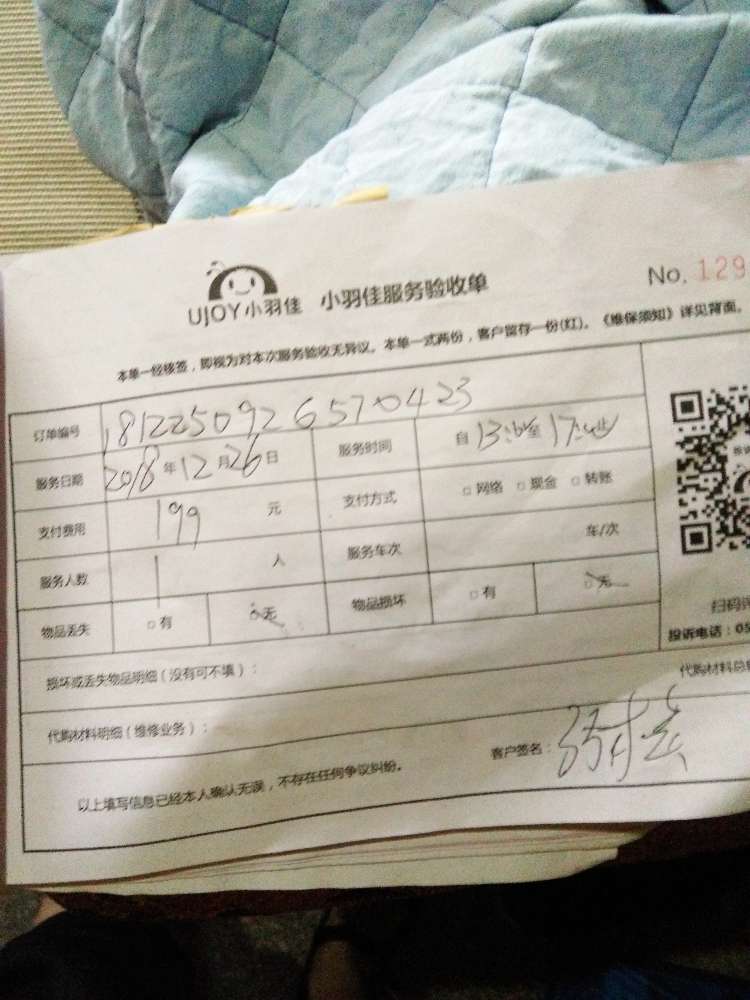 UJOY小羽佳 小羽佳服务验收单
No. 129
本单一经核签，即视为对本次服务验收无异议。本单一式两份，客户留存一份(红)。《维保须知》详见背面。
订单编号 18122509265704 23
服务日期 2018年12月26日 服务时间 自13: 至17: 止
支付费用 199元 支付方式 □网络 □现金 □转账
服务人数 1人 服务车次 车/次
物品丢失 □有 □无 物品损坏 □有 □无
扫码
投诉电话：05
损坏或丢失物品明细（没有可不填）：
代购材料明细（维修业务）： 代购材料总
以上填写信息已经本人确认无误，不存在任何争议纠纷。 客户签名：